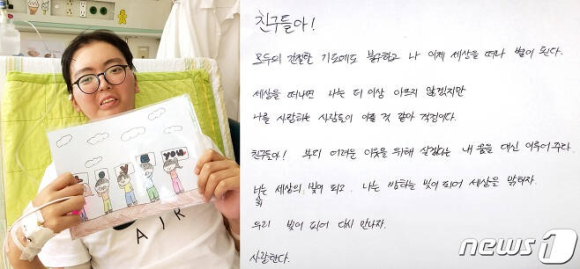 YOU!
AIR
친구들아!
모두의 간절한 기도에도 불구하고 나 이제 세상을 떠나 별이 된다.
세상을 떠나면 나는 더 이상 아프지 않겠지만
나를 사랑하는 사람들이 아플 것 같아 걱정이다.
친구들아! 부디 어려운 이웃을 위해 살겠다는 내 꿈을 대신 이루어주라.
너희는 세상의 빛이 되고, 나는 밤하늘 빛이 되어 세상을 밝히자.
우리 빛이 되어 다시 만나자.
사랑한다.
news1